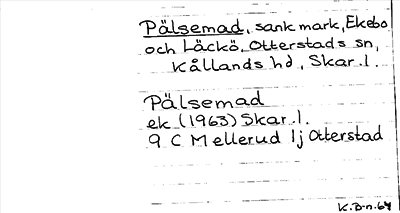 Pälsemad, sank mark, Ekebo
och Läckö, Otterstads sn,
Kållands hd, Skar. l.
Pälsemad
ek (1963) Skar. l.
9 C Mellerud lj Otterstad
K.D-n.64